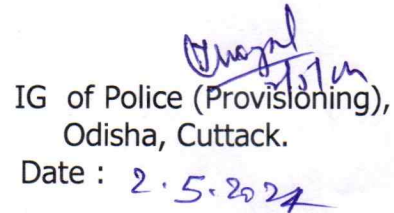 IG of Police (Provisioning),
Odisha, Cuttack.
Date : 2.5.2024